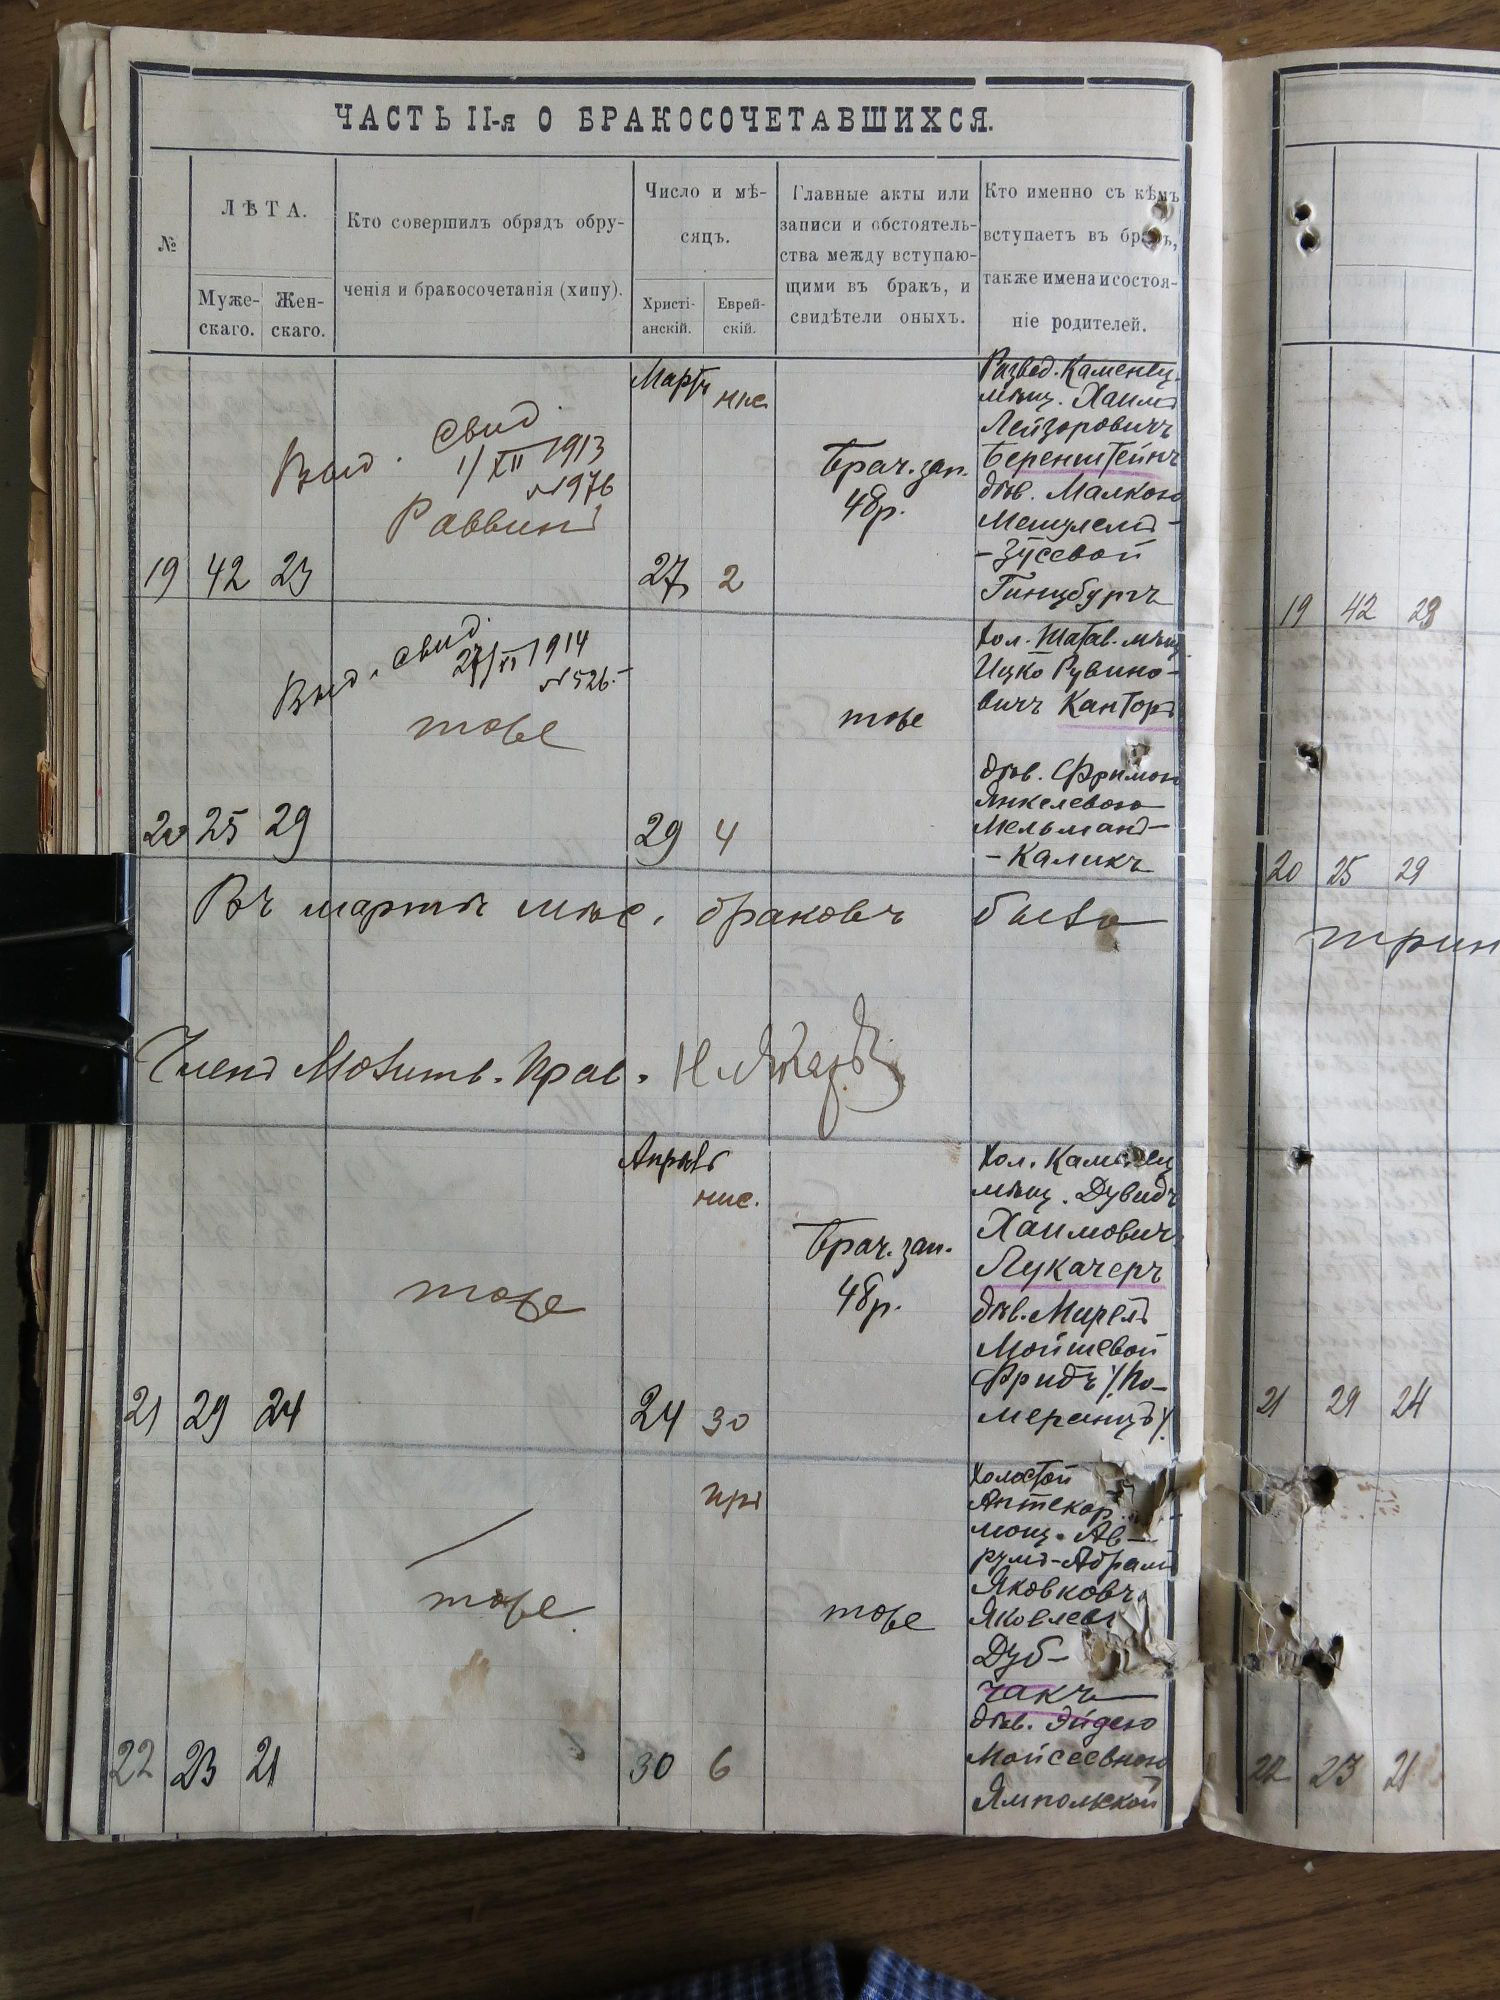 ЧАСТЬ II-я О БРАКОСОЧЕТАВШИХСЯ.
№
ЛѢТА.
Муже-
скаго.
Жен-
скаго.
Кто совершилъ обрядъ обру-
ченія и бракосочетанія (хипу).
Число и мѣ-
сяцъ.
Христі-
анскій.
Еврей-
скій.
Главные акты или
записи и обстоятель-
ства между вступаю-
щими въ бракъ, и
свидѣтели оныхъ.
Кто именно съ кѣмъ
вступаетъ въ бракъ,
также имена и состоя-
ніе родителей.
19 42 23
Выд. свид.
1/XII 1913
№1976
Раввинъ
Мартъ нис.
27 2
Брач. зап.
48 р.
Развед. Каменец.
мѣщ. Хаимъ
Лейзоровичъ
Беренштейнъ
дѣв. Малкою
Мешулемъ-
-Зусевой
Гинцбургъ
20 25 29
Выд. свид.
27/VI 1914
№526.-
тоже
29 4
тоже
Хол. Шатав. мѣщ.
Ицко Рувино-
вичъ Канторъ
дѣв. Фримою
Янкелевою
Мельманъ-
-Каликъ
Въ мартѣ мѣс. браковъ было
Членъ Молитв. Прав.
21 29 24
тоже
Апрѣль
нис.
24 30
Брач. зап.
48 р.
Хол. Каменец
мѣщ. Дувидъ
Хаимовичъ
Лукачеръ
дѣв. Мирелъ
Мойшевой
Фридъ /По-
меранцъ/.
22 23 21
тоже
Иръ
30 6
тоже
Холостой
Аптекар.
мощ. Ав-
румъ-Абрамъ
Яковковъ
Яковлевъ
Дуб-
чакъ
дѣв. Эйдею
Мойсеевною
Ямпольской
19 42 23
20 25 29
трин
21 29 24
22 23 21